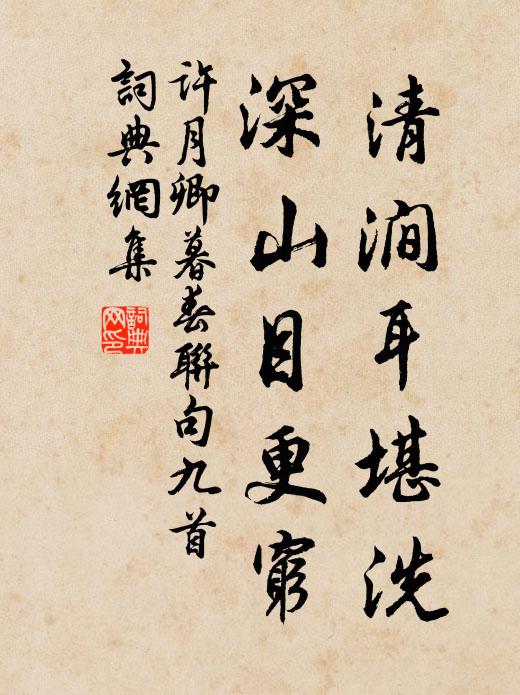 清澗耳堪洗
深山目更窮
許月卿暮春聯句九首
詞典網集
詞典网印